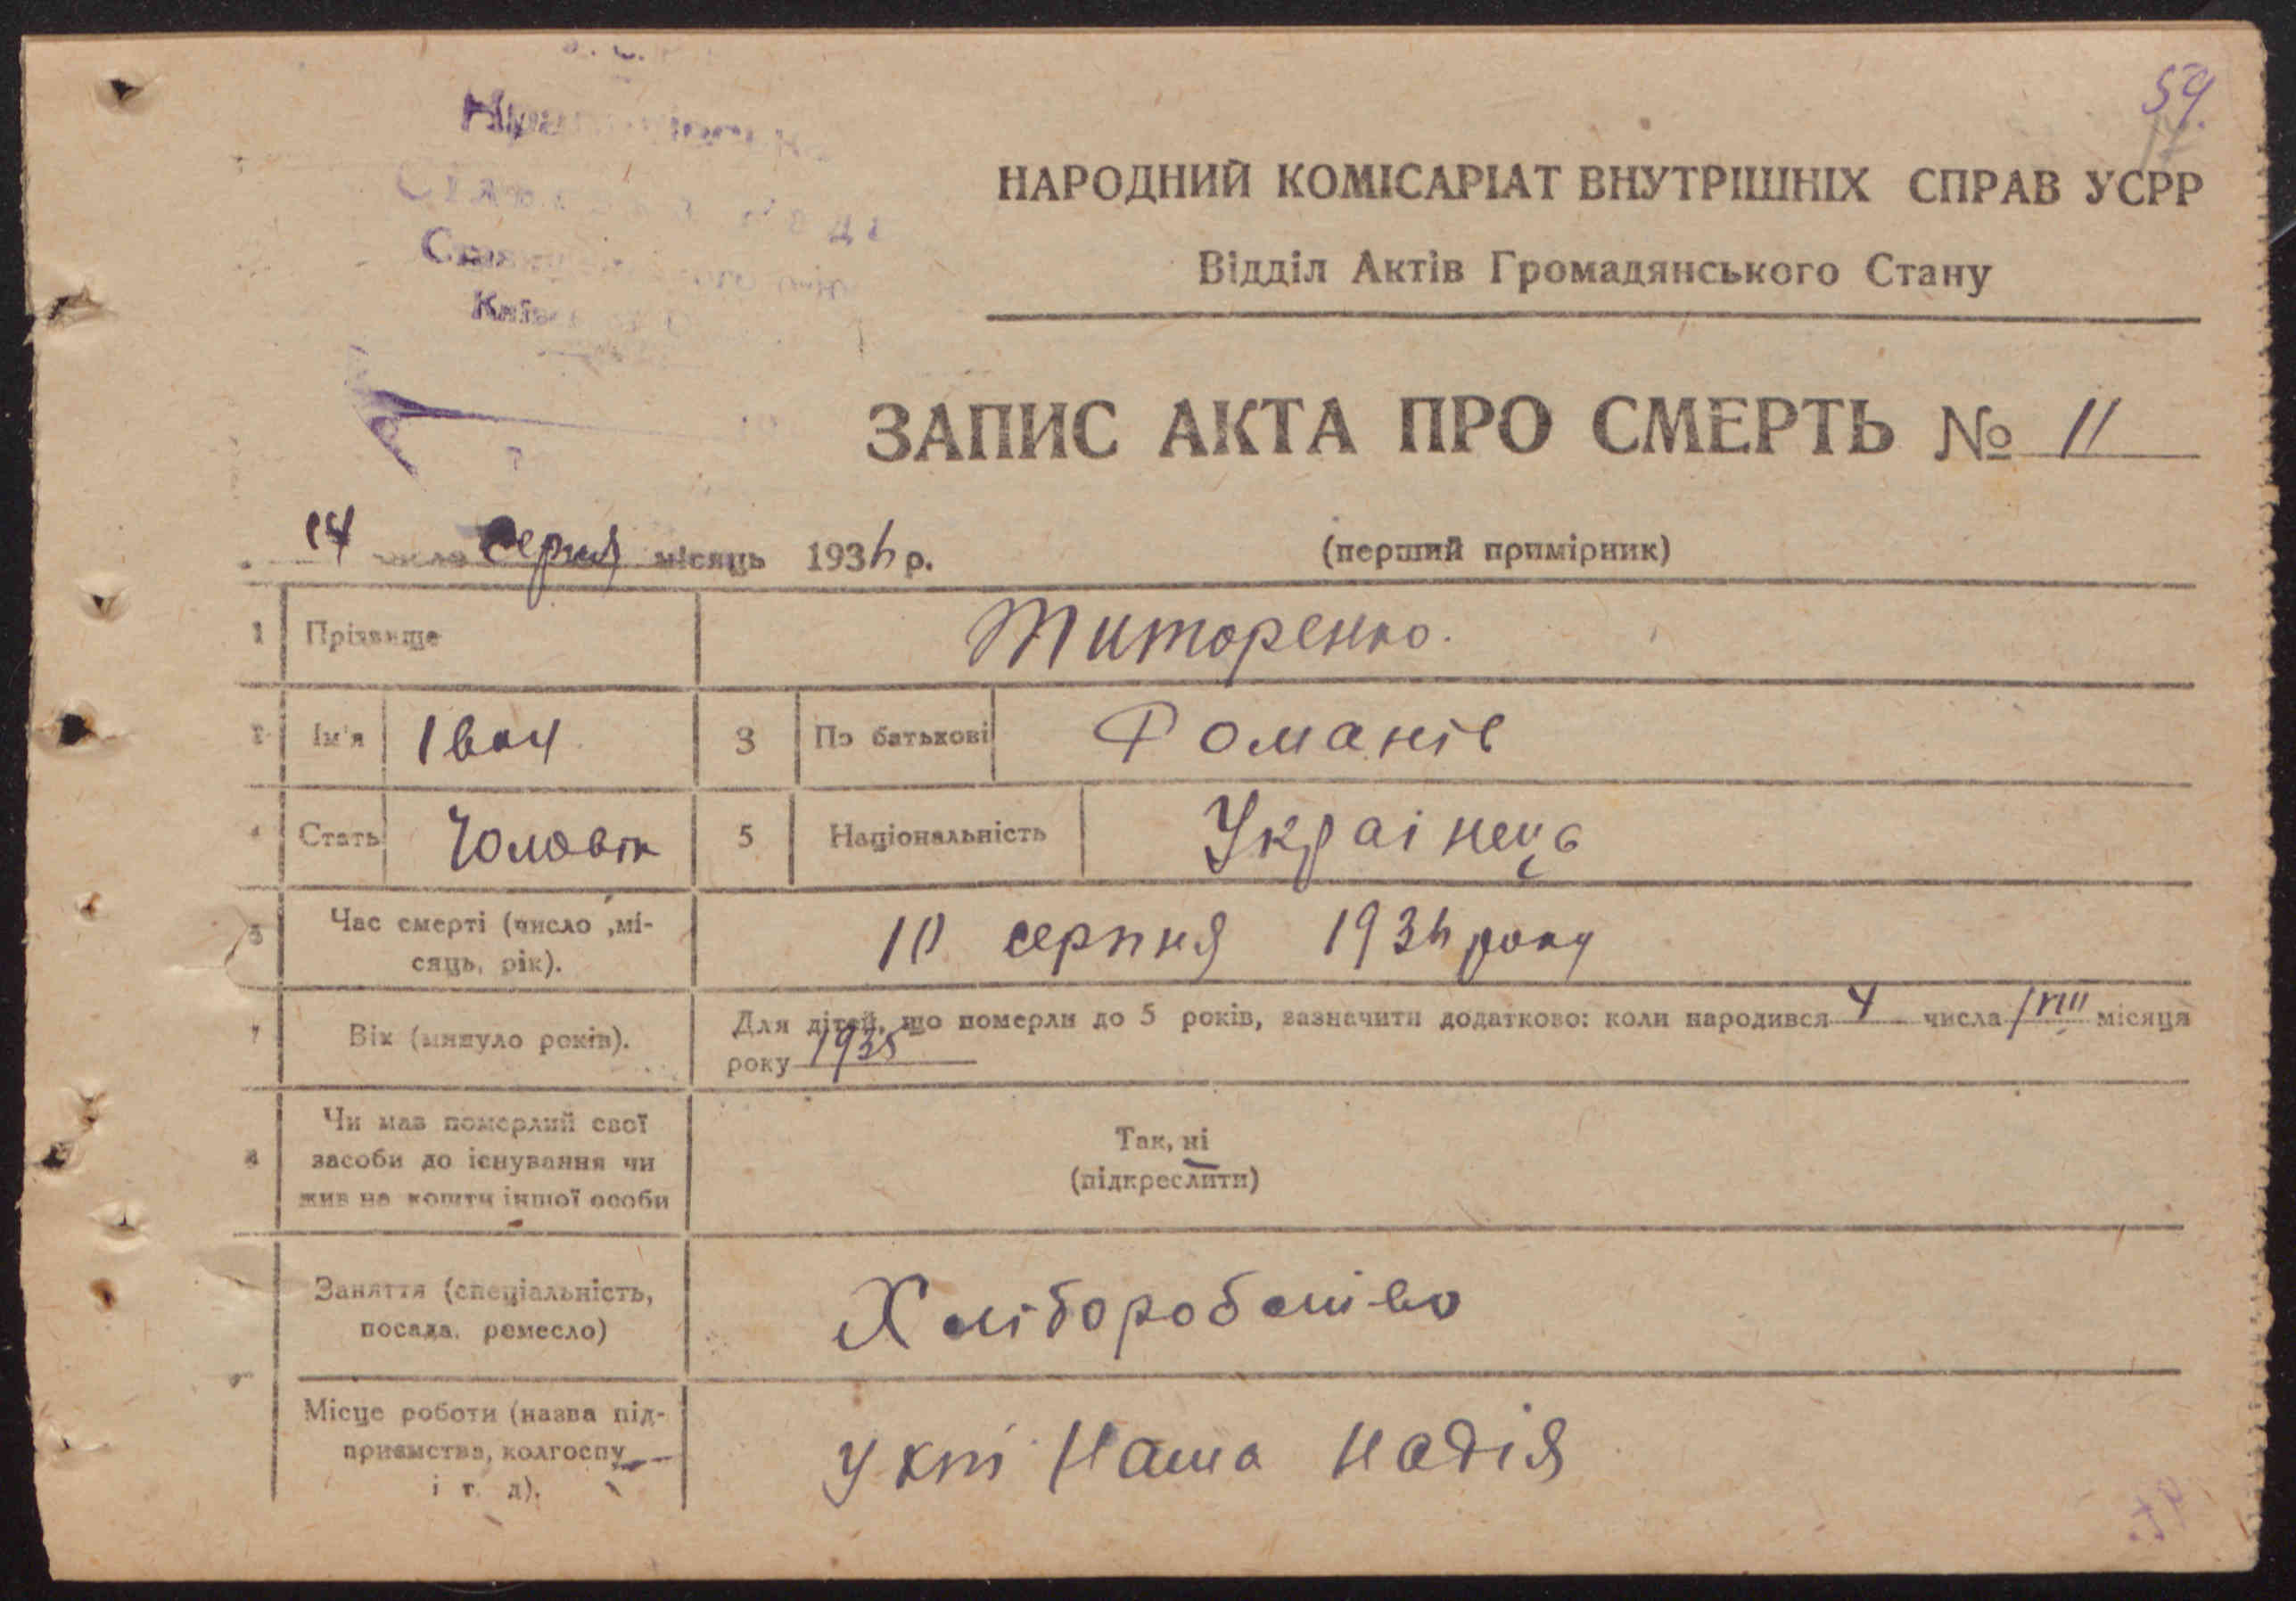 59.
НАРОДНИЙ КОМІСАРІАТ ВНУТРІШНІХ СПРАВ УСРР
Відділ Актів Громадянського Стану
ЗАПИС АКТА ПРО СМЕРТЬ № 11
14 число Серпня місяць 1936 р.
(перший примірник)
1 Прізвище Титоренко.
2 Ім'я Іван 3 По батькові Романів
4 Стать Чоловік 5 Національність Українець
Час смерті (число ,мі-
сяць, рік).
10 серпня 1936 року
7 Вік (минуло років).
Для дітей, що померли до 5 років, зазначити додатково: коли народився 4 числа VIII місяця
року 1935
8 Чи мав померлий свої
засоби до існування чи
жив на кошти іншої особи
Так, ні
(підкреслити)
Заняття (спеціальність,
посада, ремесло)
Хліборобство
Місце роботи (назва під-
приємства, колгоспу
і т. д).
Наша Надія